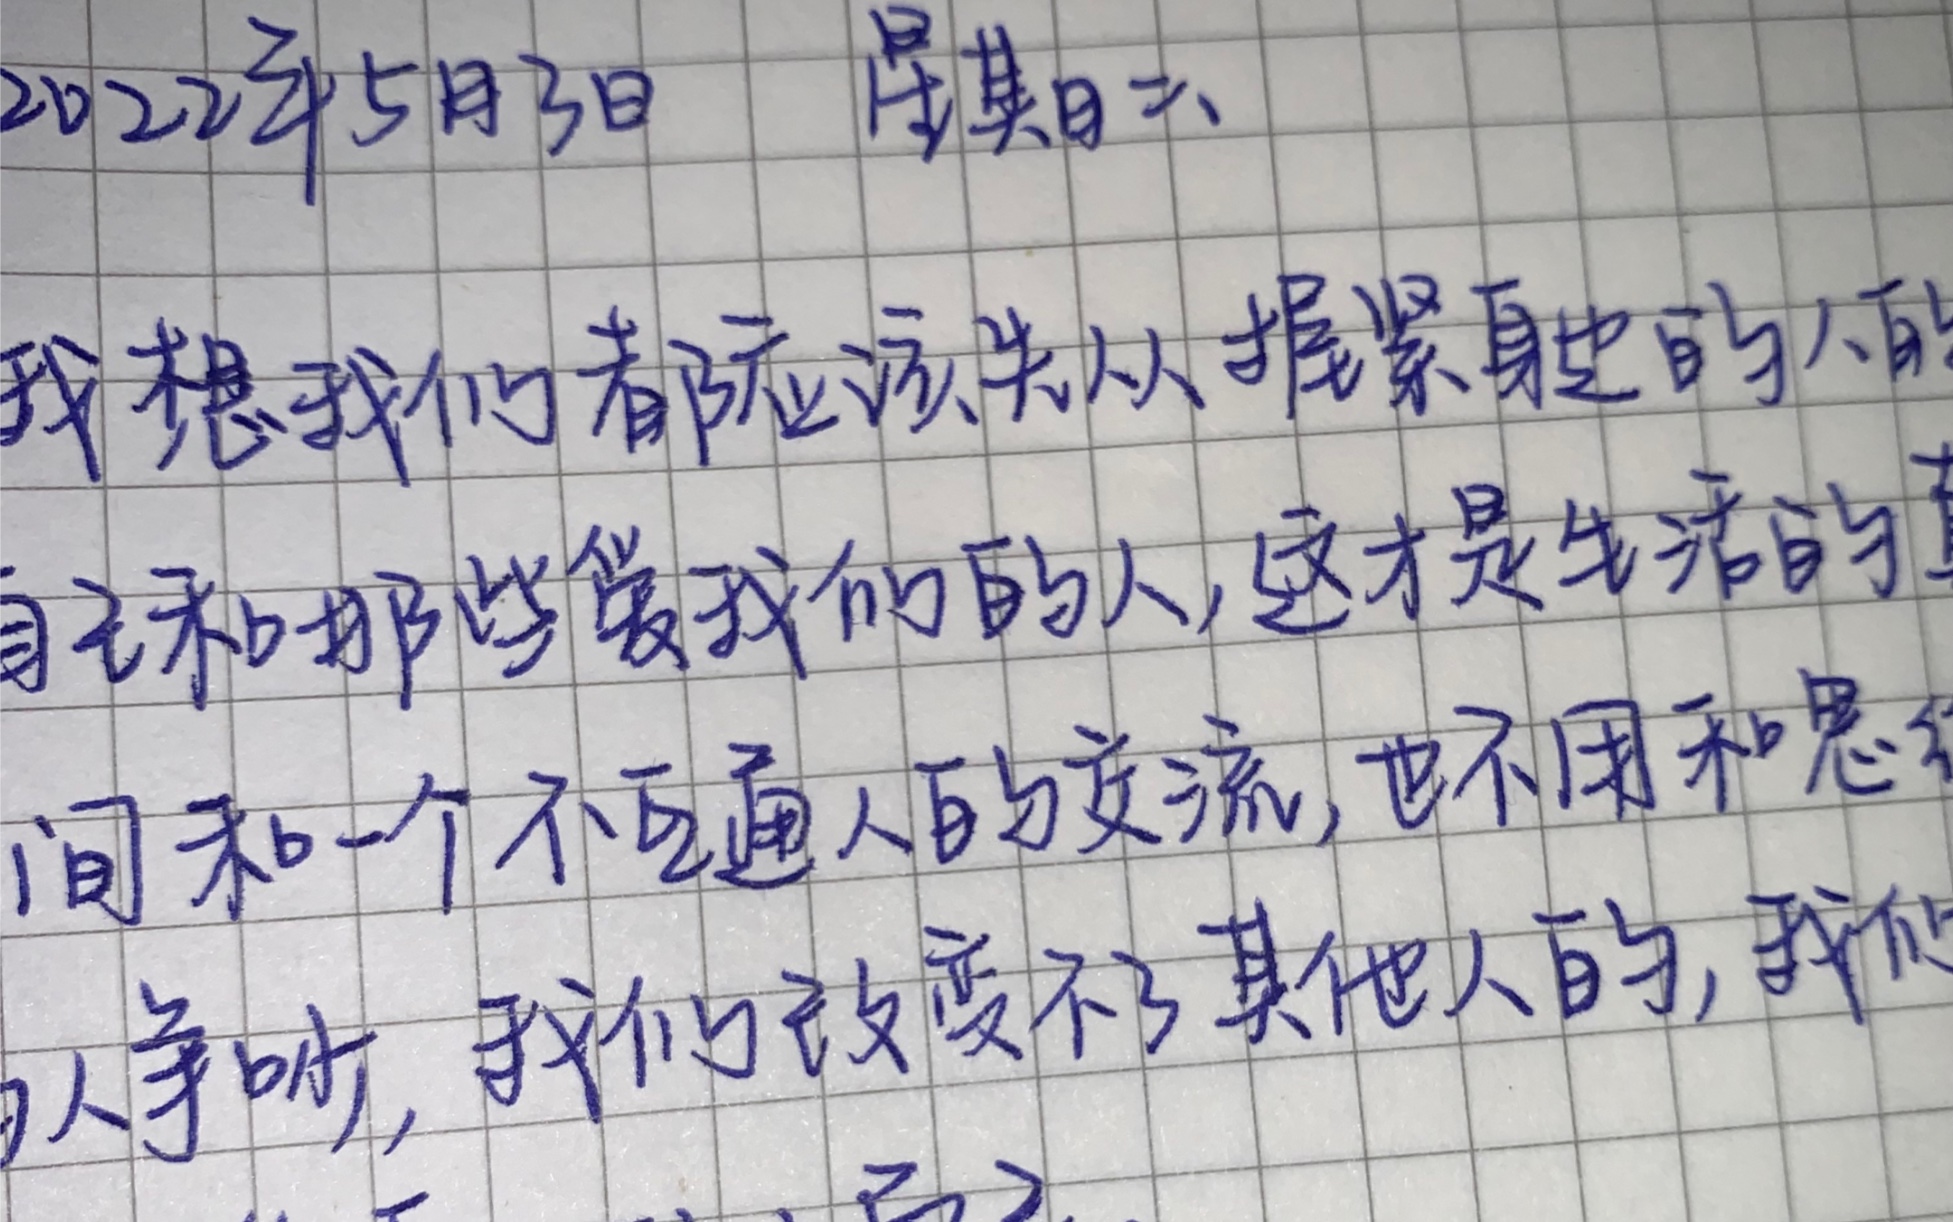 2022年5月3日 星期二、
我想我们都应该先从握紧身边的人的
自己和那些爱我们的人,这才是生活的真
间和一个不互通人的交流,也不用和思
的人争吵,我们改变不了其他人的,我们